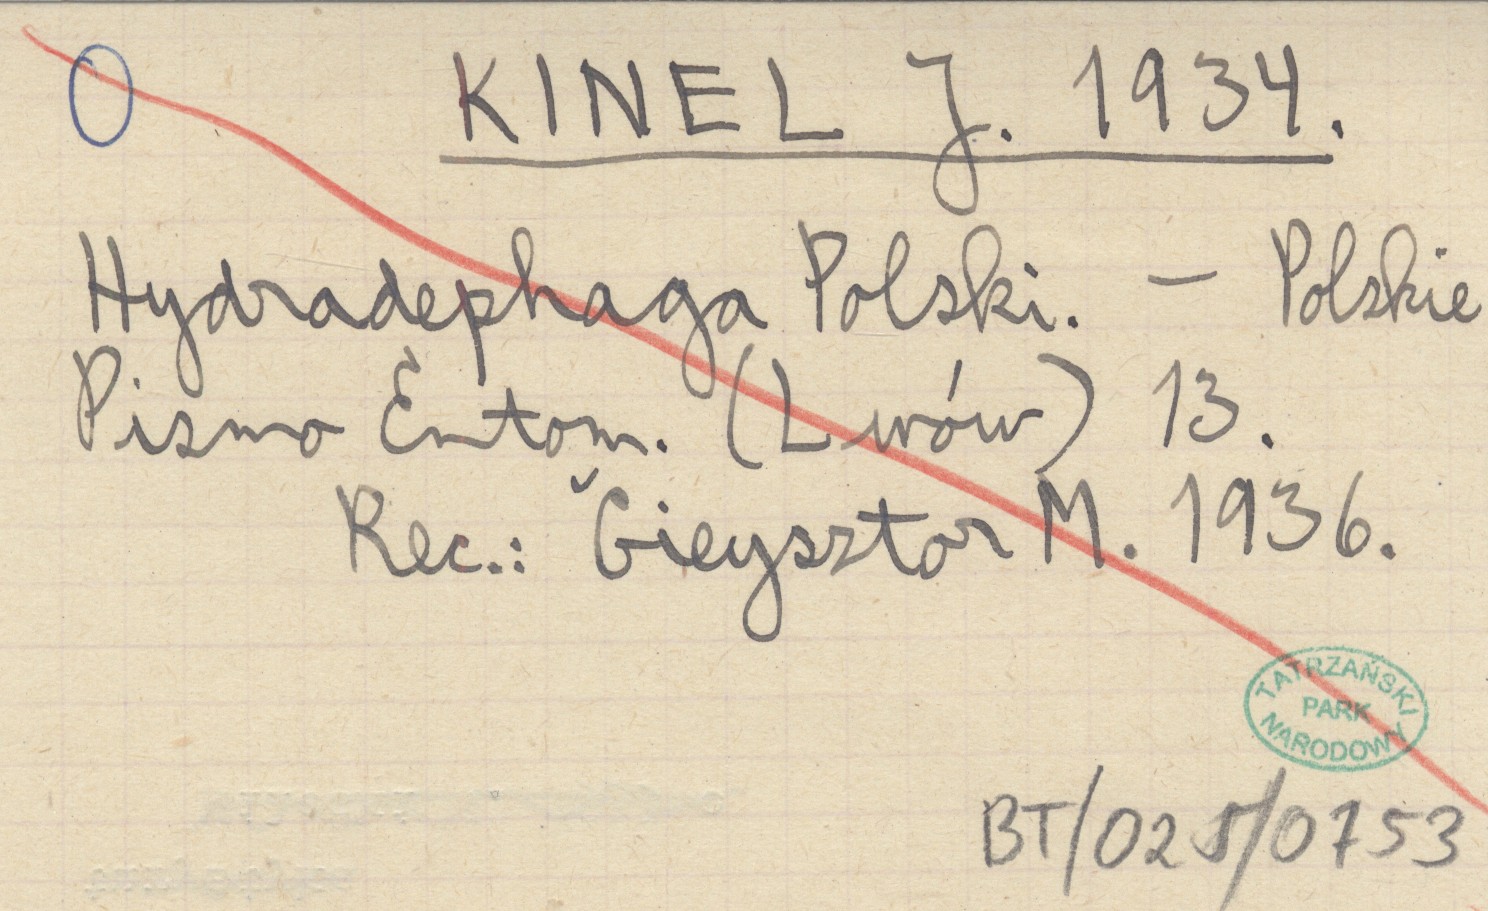 O
KINEL J. 1934.
Hydradephaga Polski. — Polskie
Pismo Entom. (Lwów) 13.
Rec.: Gieysztor M. 1936.
TATRZAŃSKI
PARK
NARODOWY
BT/025/0753